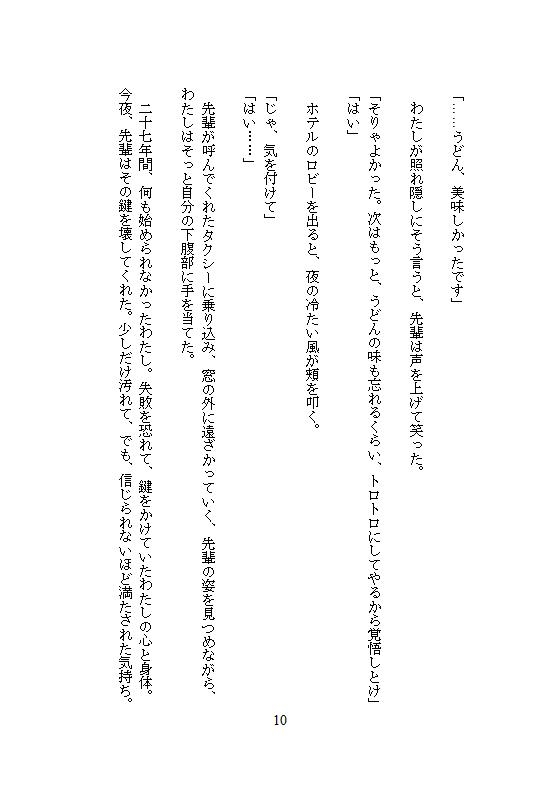 「……うどん、美味しかったです」
わたしが照れ隠しにそう言うと、先輩は声を上げて笑った。
「そりゃよかった。次はもっと、うどんの味も忘れるくらい、トロトロにしてやるから覚悟しとけ」
「はい」
ホテルのロビーを出ると、夜の冷たい風が頬を叩く。
「じゃ、気を付けて」
「はい……」
先輩が呼んでくれたタクシーに乗り込み、窓の外に遠ざかっていく、先輩の姿を見つめながら、
わたしはそっと自分の下腹部に手を当てた。
二十七年間、何も始められなかったわたし。失敗を恐れて、鍵をかけていたわたしの心と身体。
今夜、先輩はその鍵を壊してくれた。少しだけ汚れて、でも、信じられないほど満たされた気持ち。
10